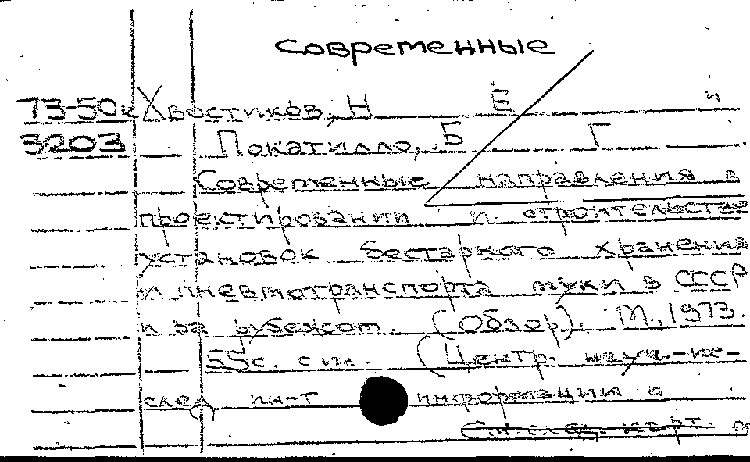 современные
73-50к Хвостиков, Н Е и
3203 Покатилло, Б Г
Современные направления в
проектировании и строительстве
установок бестарного хранения
и пневмотранспорта муки в СССР
и за рубежом. (Обзор). М., 1973.
55с. с ил. (Центр. науч.-ис-
след ин-т информации и
См. след. карт.